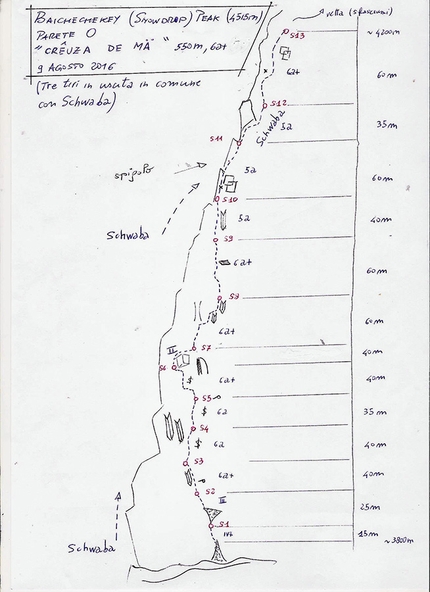 BAICHECHEKEY (SNOWDRAP) PEAK (4515m)
PARETE O
"CRÊUZA DE MÄ" 550m, 6a+
9 AGOSTO 2016
(Tre tiri in uscita in comune
con Schwaba)
vetta
S13
~ 4200m
6a+
60m
S12
Schwaba
5a
35m
S11
spigolo
5a
60m
S10
Schwaba
5a
40m
S9
6a+
60m
S8
60m
6a+
S7
III
40m
S6
6a+
40m
S5
6a
35m
S4
6a
40m
S3
6a+
40m
S2
II
25m
S1
15m
~ 3800m
Schwaba